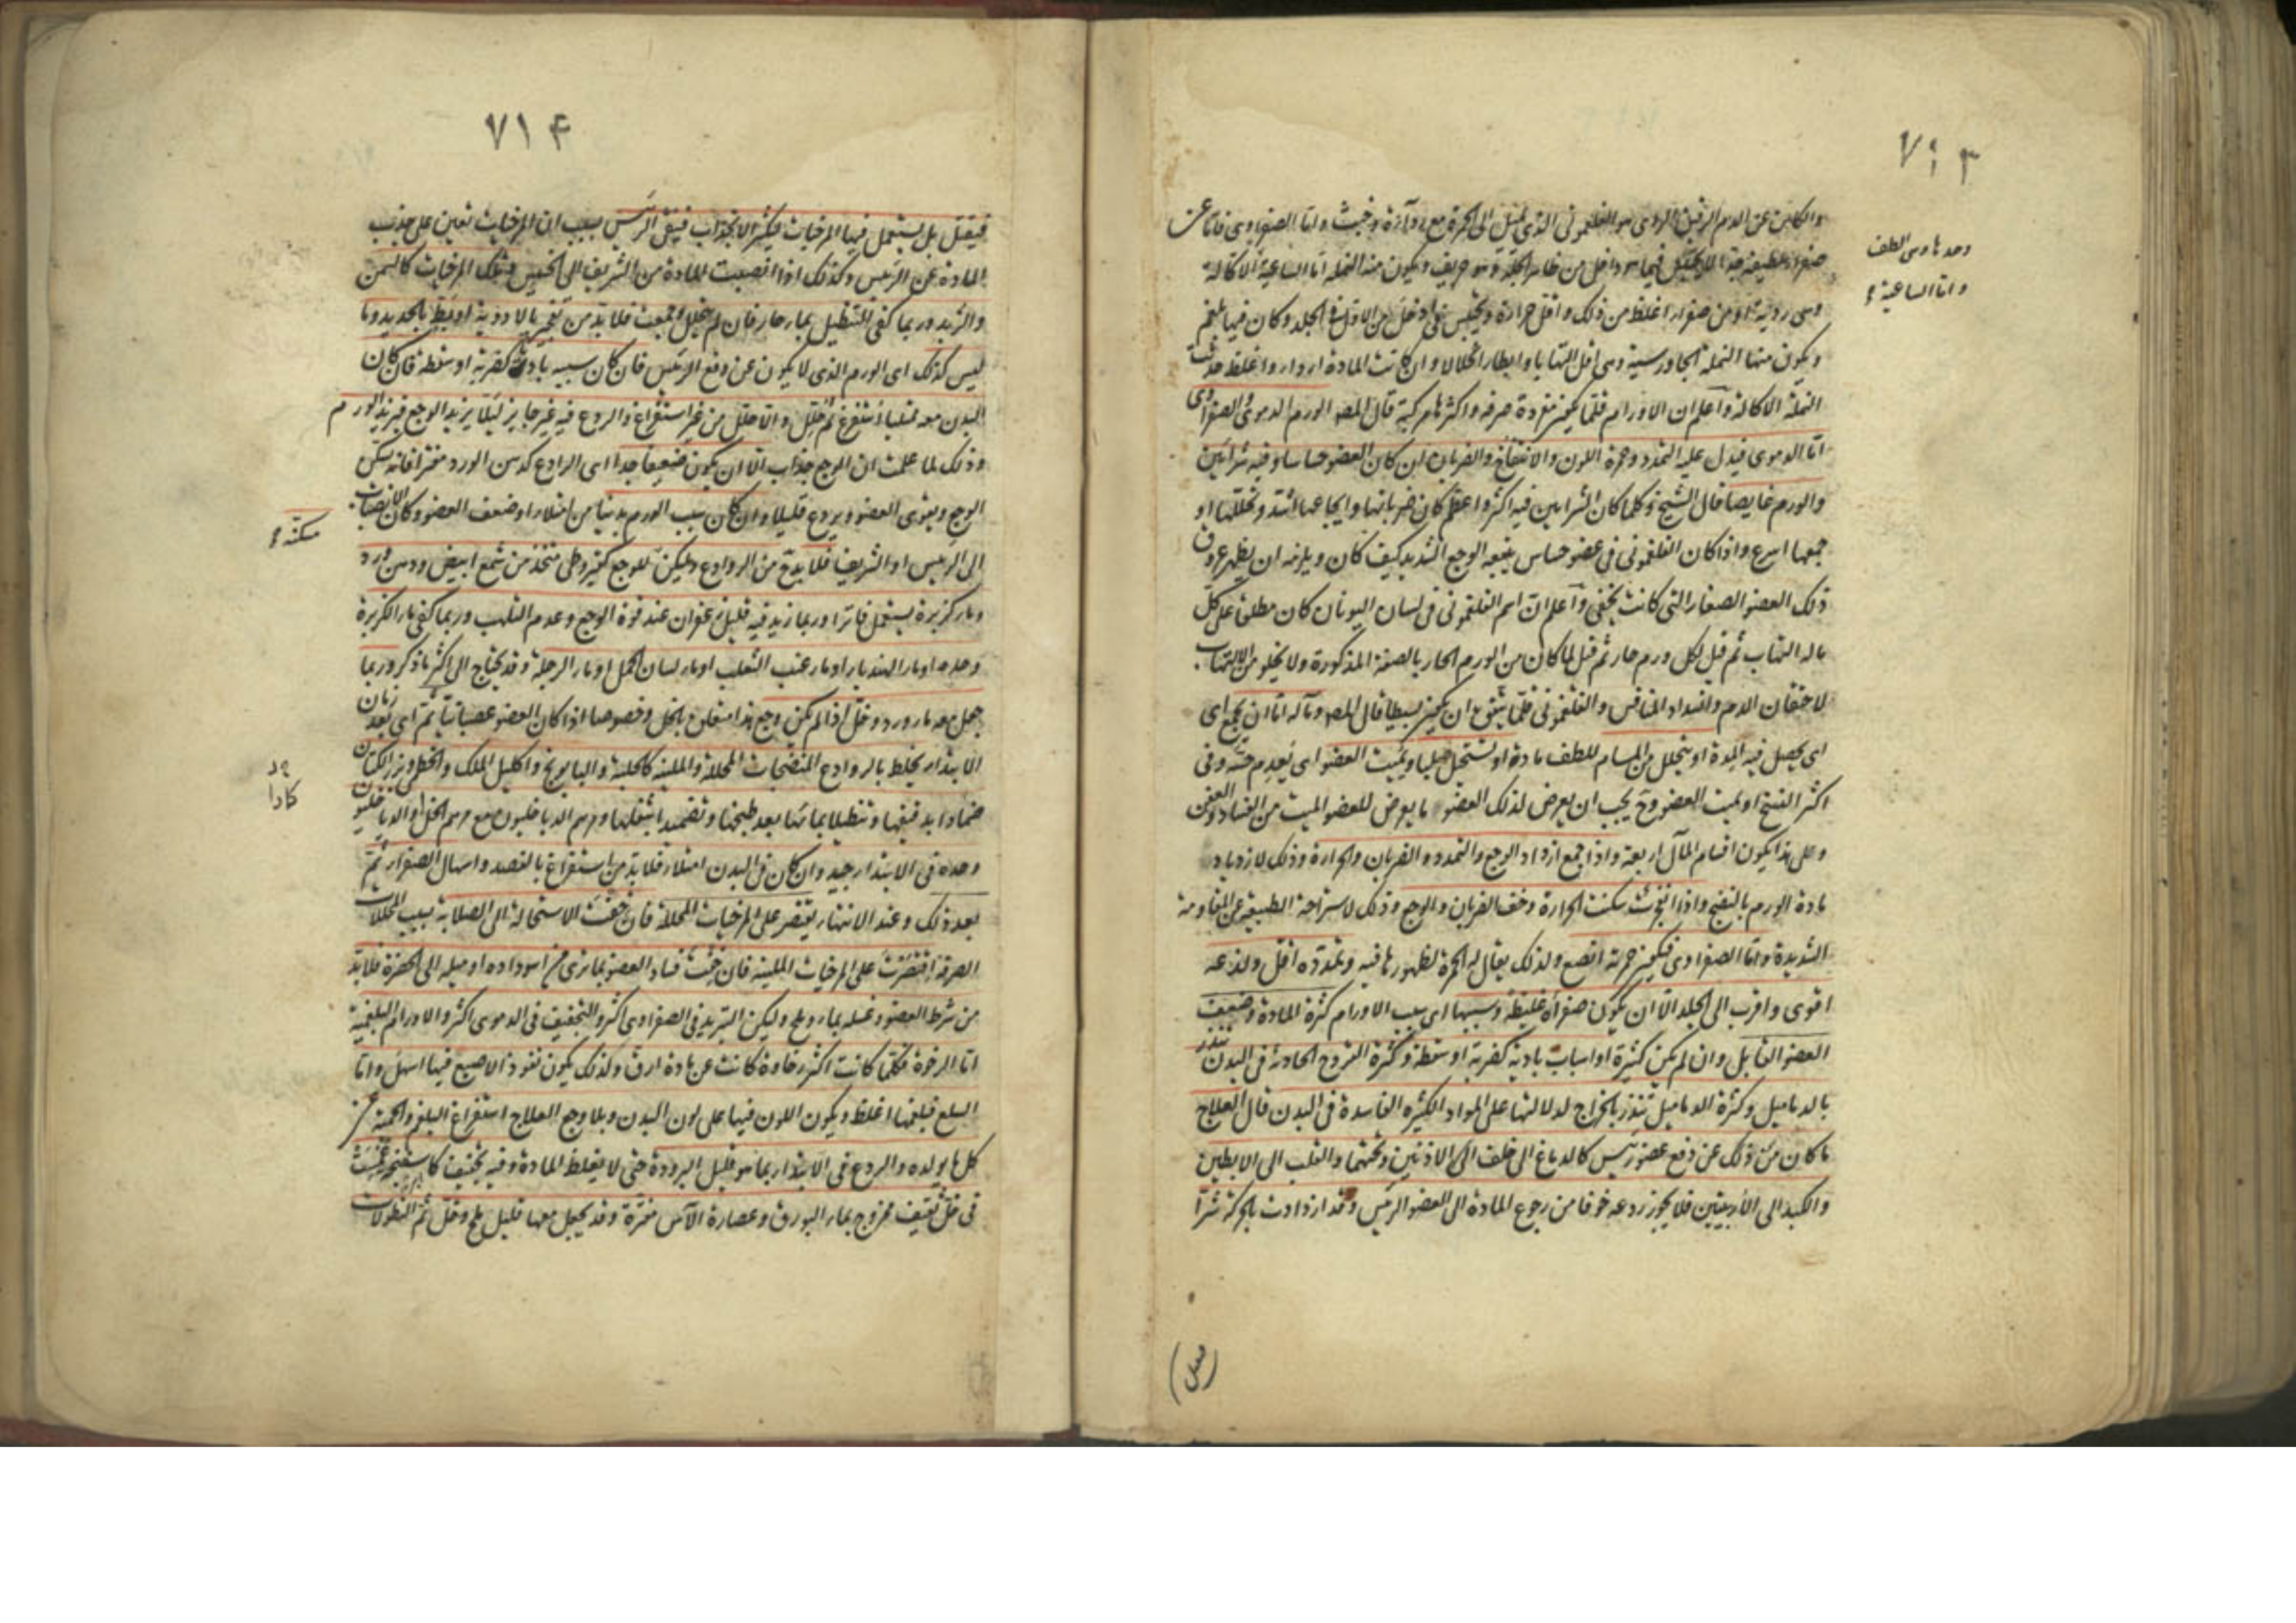 ٧١٣
والكائن عن الدم الرقيق الردى هو الفلغمونى الذى يميل الى الحمرة مع رداءة وخبث واما الصفراوى فاما عن
صفراء لطيفة جدا لا تحتبس فيما هو داخل من ظاهر الجلد وهو حريف ويكون منه النملة اما الساعية الاكالة
وحدها وهى الطف
واما الساعية
وهى ردية او من صفراء اغلظ من ذلك واقل حرارة وتحتبس فى ادخل من الاول فى الجلد وكان فيها بلغم
ويكون منها النملة الجاورسية وهى اقل التهابا وابطأ انحلالا وان كانت المادة اردأ واغلظ حدثت
النملة الاكالة واعلم ان الاورام قلما تكون مفردة صرفة واكثرها مركبة قال المصـ الورم الدموى والصفراوى
اما الدموى فيدل عليه التمدد وحمرة اللون والانتفاخ والضربان ان كان العضو حساسا وفيه شرائين
والورم غايصا قال الشيخ وكلما كان الشرايين فيه اكثر واعظم كان ضربانها وايجاعها اشد وتحللها او
جمعها اسرع واذا كان الفلغمونى فى عضو حساس يتبعه الوجع الشديد كيف كان ويلزمه ان يظهر عروق
ذلك العضو الصغار التى كانت تخفى واعلم ان اسم الفلغمونى فى لسان اليونان كان مطلقا على كل
ماله التهاب ثم قيل لكل ورم حار ثم قيل لما كان من الورم الحار بالصفة المذكورة ولا يخلو من الالتهاب
لاحتقان الدم وانسداد المنافس والفلغمونى قلما يتفق ان يكون بسيطا قال المصـ وماله اما ان يجمع اى
اى يحصل فيه المدة او يتحلل من المسام للطف مادة او يستحيل صلبا ويميت العضو اى يعدم حسه وفى
اكثر النسخ او يميت العضو وح يجب ان يعرض لذلك العضو ما يعرض للعضو الميت من الفساد والعفن
وعلى هذا يكون اقسام المآل اربعة واذا جمع ازداد الوجع والتمدد والضربان والحرارة وذلك لازدياد
مادة الورم بالنضج واذا انفجرت سكنت الحرارة وخف الضربان والوجع وذلك لاستراحة الطبيعة عن المقاومة
الشديدة واما الصفراوى فيكون حمرته انصع ولذلك يقال له الحمرة لظهورها فيه وتمدده اقل ولذعه
اقوى واقرب الى الجلد الا ان يكون صفراؤه غليظة وسببها اى سبب الاورام كثرة المادة وضعف
العضو القابل وان لم يكن كثيرة او اسباب بادية كضربة او سقطة وكثرة القروح الحادثة فى البدن تنذر
بالدماميل وكثرة الدماميل تنذر بالخراج لدلالتها على المواد الكثيرة الفاسدة فى البدن قال العلاج
ما كان من ذلك عن دفع عضو رئيس كالدماغ الى خلف الاذنين وتحتهما والقلب الى الابطين
والكبد الى الاربيتين فلا يجوز ردعه خوفا من رجوع المادة الى العضو الرئيس وقد ازدادت بالحركة شرا
٧١۴
فيقتل بل يستعمل فيها المرخيات ليكثر الانجذاب فينقى الرئيس بسبب ان المرخيات تعين على جذب
المادة عن الرئيس وكذلك اذا انصبت المادة من الشريف الى الخسيس وتلك المرخيات كالسمن
والزبد وربما كفى التنطيل بماء حار فان لم يتحلل وجمعت فلا بد من تفجير بالادوية او بط بالحديد وما
ليس كذلك اى الورم الذى لا يكون عن دفع الرئيس فان كان سببه باديا كضربة او سقطة فان كان
البدن معه ممتلئا استفرغ ثم حلل والا حلل من غير استفراغ والردع فيه غير جايز ليلا يزيد الوجع فيزيد الورم
وذلك لما علمت ان الوجع جذاب الا ان يكون ضعيفا جدا اى الرادع كدهن الورد مفترا فانه يسكن
الوجع ويقوى العضو ويردع قليلا وان كان سبب الورم بدنيا من امتلاء او ضعف العضو وكان الانصباب
الى الرئيس او الشريف فلا بد من الروادع وليكن للوجع كقيروطى متخذ من شمع ابيض ودهن ورد
وماء كزبرة يستعمل فاترا وربما زيد فيه قليل زعفران عند قوة الوجع وعدم التلهب وربما كفى ماء الكزبرة
وحده او ماء الهندباء او ماء عنب الثعلب او ماء لسان الحمل او ماء الرجلة وقد يحتاج الى اكثر ما ذكر وربما
جعل معه ماء ورد وخل اذا لم يكن وجع هذا متعلق بالخل وخصوصا اذا كان العضو عصبانيا ثم اى بعد زمان
الابتداء يخلط بالروادع المنضجات المحللة والملينة كالحلبة والبابونج واكليل الملك والخطمى وبزر الكتان
ضمادا بدقيقها وتنطيلا بمائها بعد طبخها وتضميدا بثفلها ومرهم الدياخليون مع مرهم الخل او الدياخليون
وحده فى الابتداء جيد وان كان فى البدن امتلاء فلا بد من استفراغ بالفصد واسهال الصفراء ثم
بعد ذلك وعند الانتهاء يقتصر على المرخيات المحللة فان خفت الاستحالة الى الصلابة بسبب المحللات
الصرفة اقتصرت على المرخيات الملينة فان خفت فساد العضو بما ترى من اسوداده او ميله الى الخضرة فلا بد
من شرط العضو وغسله بماء وملح وليكن التبريد فى الصفراوى اكثر والتجفيف فى الدموى اكثر والاورام البلغمية
اما الرخوة فكلما كانت اكثر رخاوة كانت عن مادة ارق ولذلك يكون نفوذ الاصبع فيها اسهل واما
السلع فبلغمها اغلظ ويكون اللون فيها على لون البدن وبلا وجع العلاج استفراغ البلغم والحمية عن
كل ما يولده والردع فى الابتداء بما هو قليل البرودة حتى لا يغلظ المادة وفيه تجفيف كاسفنجة غمست
فى خل ثقيف ممزوج بماء البورق وعصارة الآس مفترة وقد يجعل معها قليل ملح وخل ثم النطولات